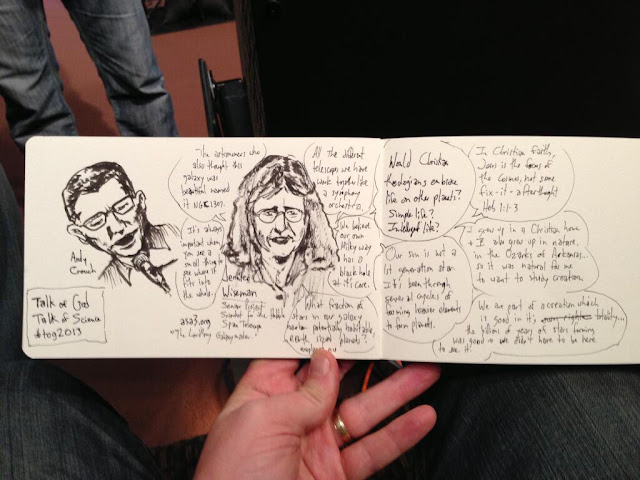 Andy
Crouch
Talk of God
Talk of Science
#tog2013
The astronomers who
also thought this
galaxy was
beautiful named
it NGC1309.
It's always
important when
you are a
small thing to
see where it
fits into
the whole.
Jennifer
Wiseman
Senior Project
Scientist for the Hubble
Space Telescope
asa3.org
All the different
telescopes we have
work together like
a symphony
orchestra.
We believe
our own
Milky Way
has a
black hole
at its core.
What fraction of
stars in our galaxy
harbor potentially habitable
earth sized planets?
Would Christian
theologians embrace
life on other planets?
Simple life?
Intelligent life?
Our sun is not a
1st generation star.
It's been through
several cycles of
becoming heavier elements
to form planets.
In Christian faith,
Jesus is the focus of
the cosmos, not some
fix-it-afterthought
Heb 1:1-3
I grew up in a Christian home
+ I also grew up in nature,
in the Ozarks of Arkansas...
so it was natural for me
to want to study creation.
We are part of a creation which
is good in it's totality...
the billions of years of stars forming
was good + we didn't have to be here
to see it.